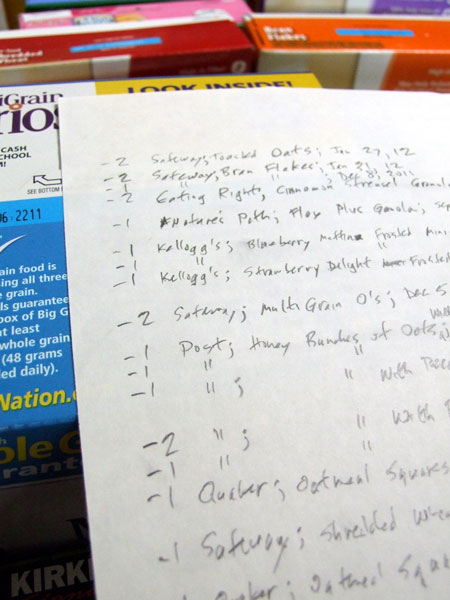 Bran
Flakes
Shredded
LOOK INSIDE!
iGrain
rios
CASH
SCHOOL
M!
SEE BOTTOM
06 2211
ain food is
ing all three
e grain.
ls guarantee
box of Big G
at least
whole grain
(48 grams
ed daily).
Nation.
ole G
rant
KIRK
-2 Safeway; Toasted Oats; Jan 27, 12
-2 Safeway; Bran Flakes; Jan 21, 12
-1 " " ; Dec 8, 2011
-2 Eating Right, Cinnamon Streusel Granola
-1 Nature's Path; Flax Plus Granola; Sep
-1 Kellogg's; Blueberry Muffin Frosted Mini
-1 " "
-1 Kellogg's; Strawberry Delight Frosted
-2 Safeway; Multi Grain O's; Dec 5
-1 Post; Honey Bunches of Oats;
-1 " "
-1 " ; " With
-2 " ; " With
-1 " "
-1 Quaker; Oatmeal Squares
-1 Safeway; Shredded Whea
Quaker; Oatmeal Squa